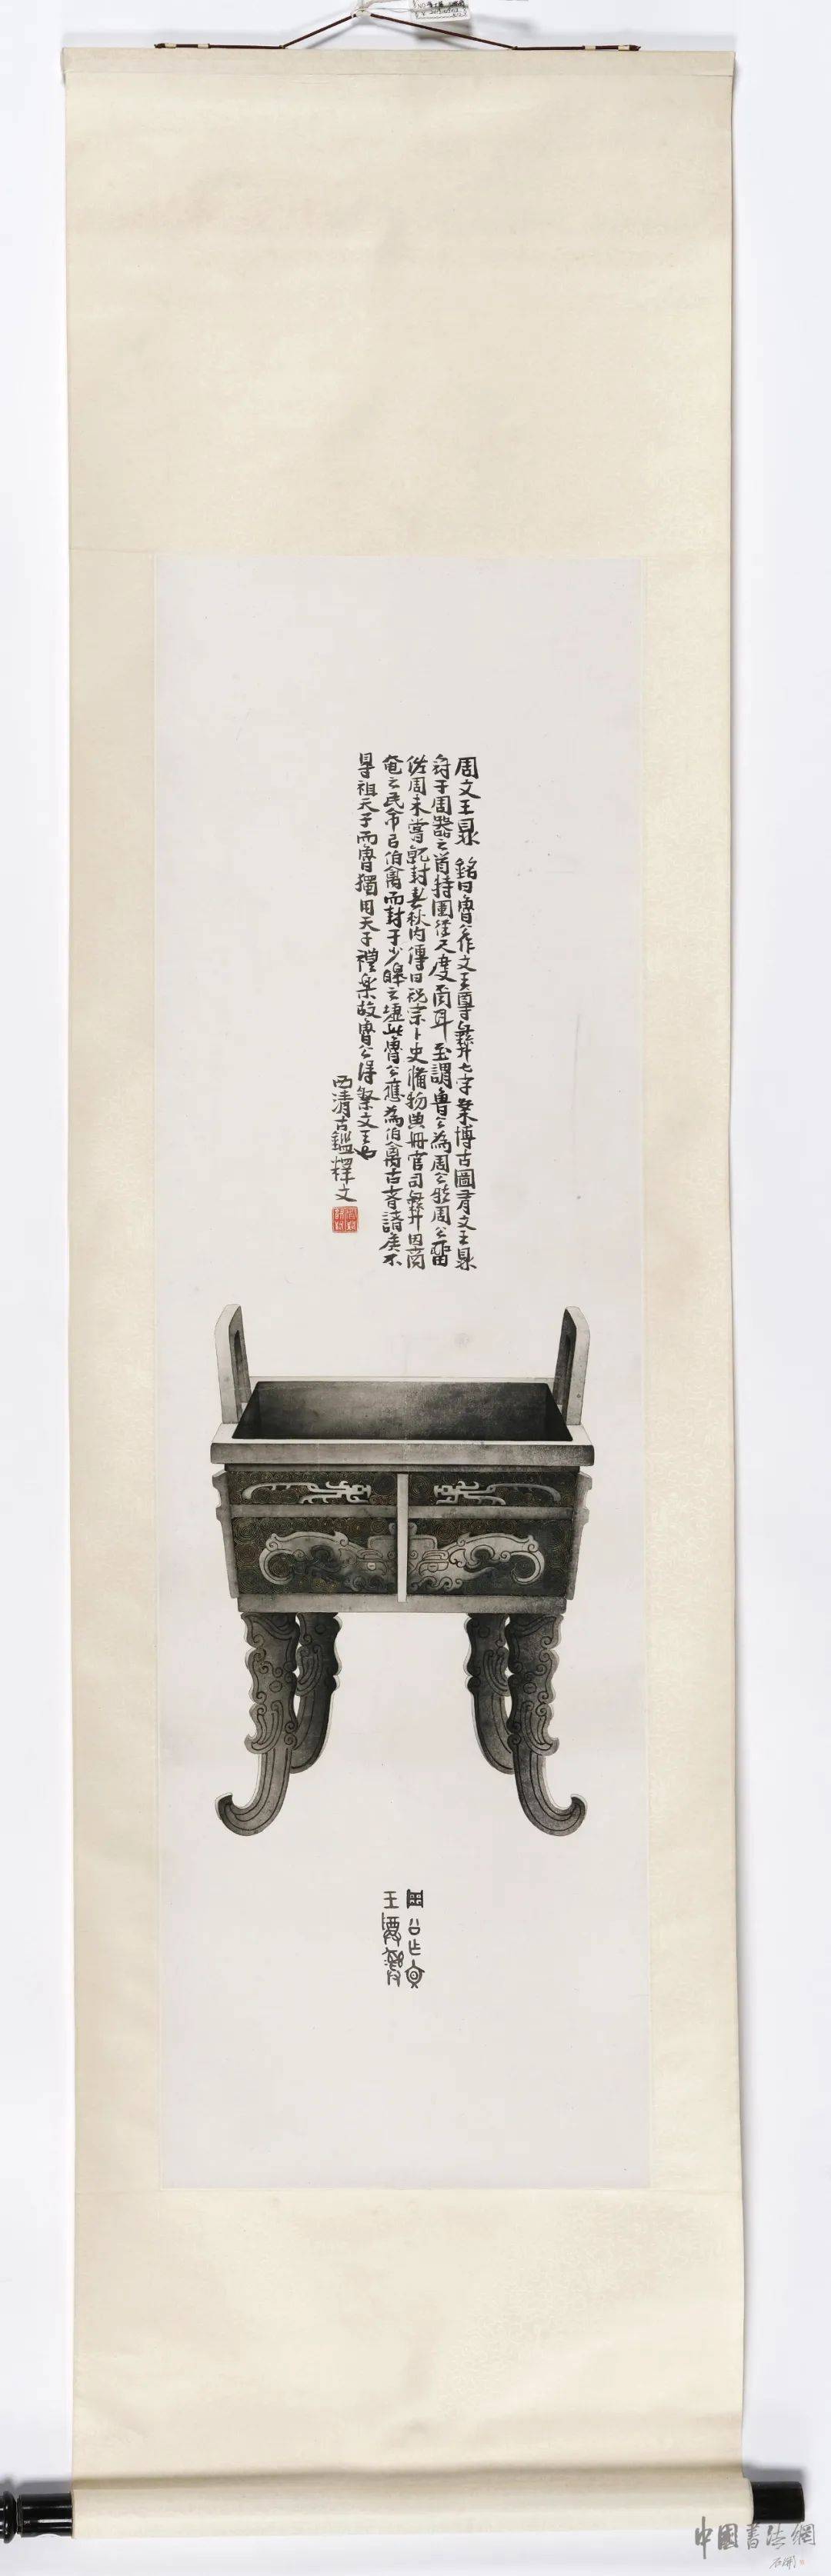 周文王鼎 銘曰魯公作文王尊彝七字案博古圖有文王鼎
列于周器之首持圍徑尺度兩耳至謂魯公為周公然周公留
佐周未嘗就封春秋內傳曰祝宗卜史備物典冊官司彝器因商
奄之民命曰伯禽而封于少皞之墟此魯公應為伯禽古者諸侯不
得祖天子而魯獨用天子禮樂故魯公得祭文王也
西清古鑑釋文
中國書法網